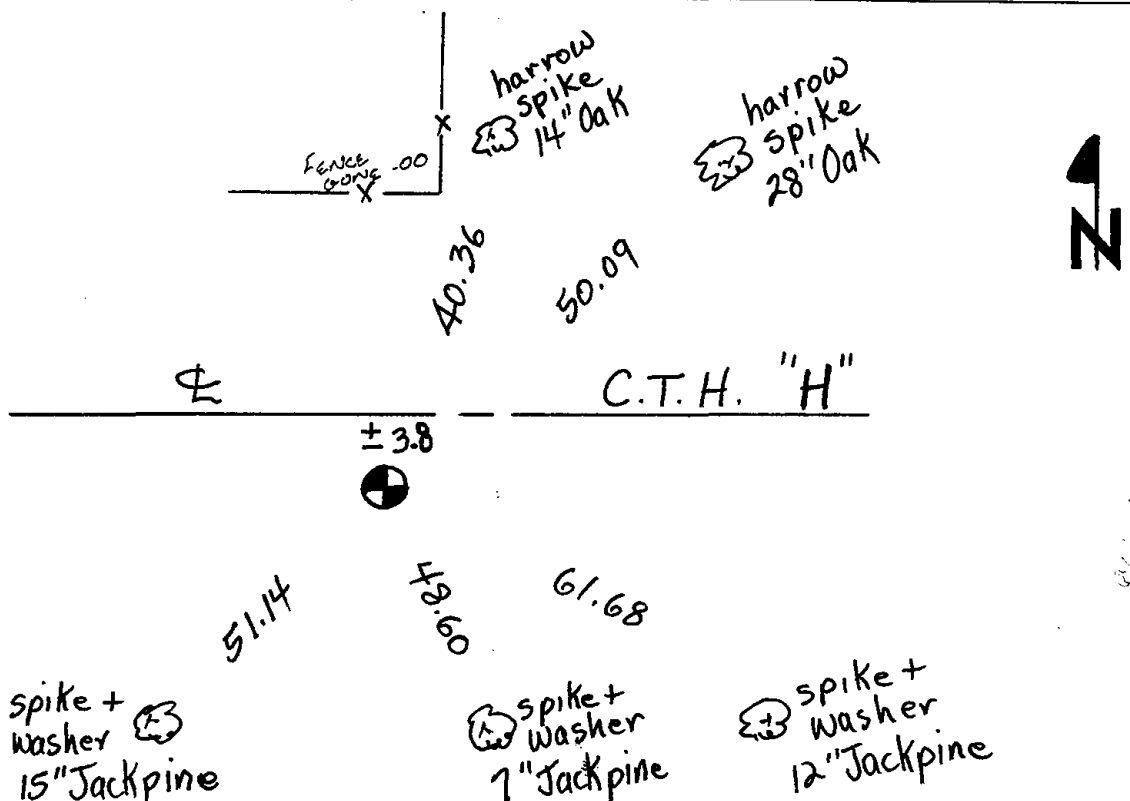 harrow
spike
14" Oak
harrow
spike
28" Oak
FENCE .00
GONE
N
40.36
50.09
℄
C.T.H. "H"
± 3.8
51.14
48.60
61.68
spike +
washer
15" Jackpine
spike +
washer
7" Jackpine
spike +
washer
12" Jackpine